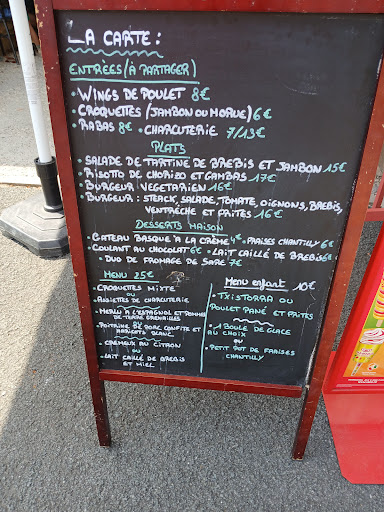 LA CARTE :
ENTRÉES (À PARTAGER)
• WINGS DE POULET 8€
• CROQUETTES (JAMBON OU MORUE) 6€
• RABAS 8€ • CHARCUTERIE 7/13€
PLATS
• SALADE DE TARTINE DE BREBIS ET JAMBON 15€
• RISOTTO DE CHORIZO ET GAMBAS 17€
• BURGEUR VEGETARIEN 16€
• BURGEUR : STEACK, SALADE, TOMATE, OIGNONS, BREBIS,
VENTRÊCHE ET FRITES 16€
DESSERTS MAISON
• GATEAU BASQUE À LA CRÈME 4€ • FRAISES CHANTILLY 6€
• COULANT AU CHOCOLAT 6€ • LAIT CAILLÉ DE BREBIS 6€
• DUO DE FROMAGE SARE 7€
MENU 25€
• CROQUETTES MIXTE
OU
• ASSIETTES DE CHARCUTERIE
• MERLU À L'ESPAGNOL ET POMMES
DE TERRE GRENAILLES
OU
• POITRINE DE PORC CONFITE ET
HARICOTS BLANC
• CRÉMEUX AU CITRON
OU
• LAIT CAILLÉ DE BREBIS
ET MIEL
MENU ENFANT 10€
• TXISTORRA OU
POULET PANÉ ET FRITES
• 1 BOULE DE GLACE
AU CHOIX
OU
PETIT POT DE FRAISES
CHANTILLY